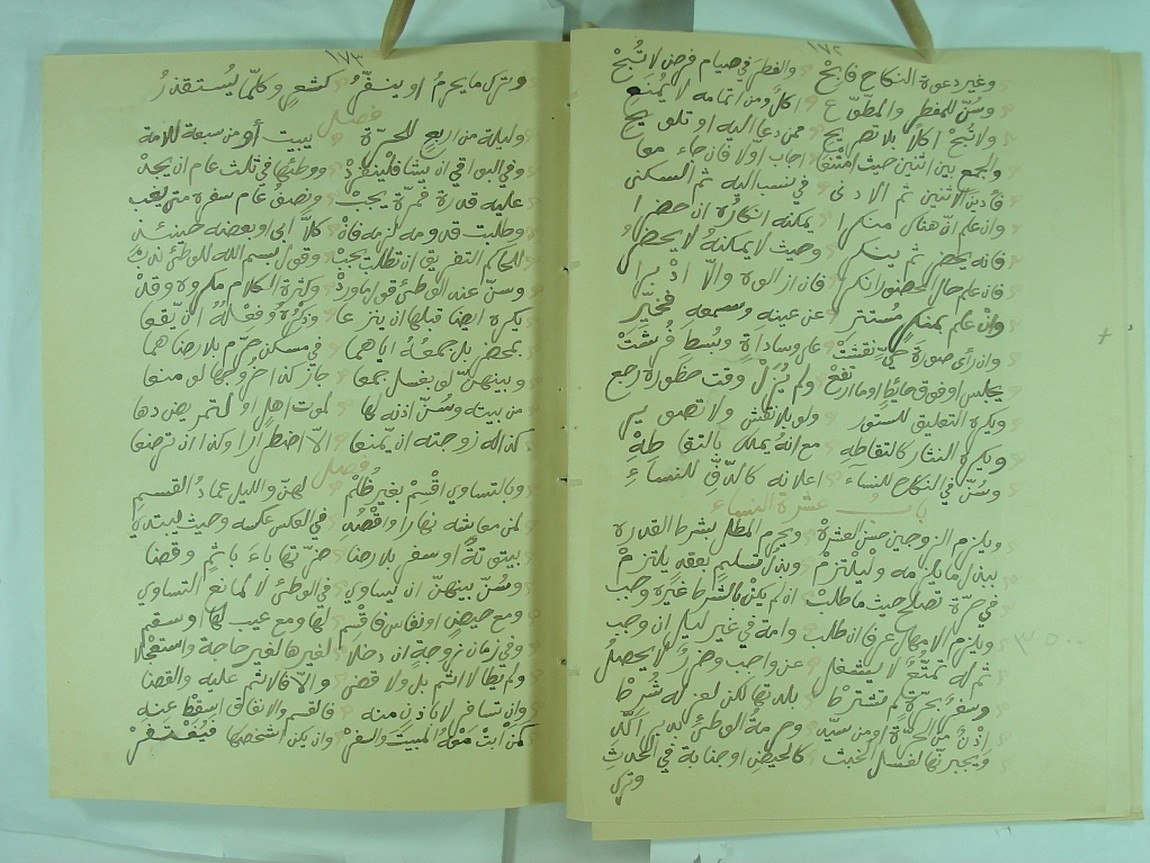 ١٧٢
وغير دعوة النكاح فابح والفطر في صيام فرض لا تُبحْ
وسُنّ للمفطر والمطّوّع اكلٌ ومن اتمامه لا يُمنعِ
ولا تُبح اكلا بلا تصريح ممن دعا اليه او تلويح
والجمع بين اثنين حيث امتنعا اجاب اوّلا فان جاء معا
فأدين الاثنين ثم الادنى في نسب اليه ثم السكنى
وان علم انّ هناك منكرا يمكنه انكاره ان حضرا
فانه يحضر ثم ينكر وحيث لا يمكنهُ لا يحضرُ
فان علم حال الحضور انكرا فان ازالوه والّا ادبرا
وانْ علم بمنكر مُستتر عن عينه وسمعه فخيِّر
وان رأى صورة حيّ نقشتْ على وسادةٍ وبُسطٍ فُرشتْ
يجلس او فوق حائطٍ او ما ارتفعْ ولم يُزَلْ وقت حظوره رجع
ويكره التعليق للستور ولو بلا نقش ولا تصوير
ويكره النثار كالتقاطهِ مع انهُ يملك بالتقاطهْ
وسُنّ في النكاح للنساء اعلانه كالدّفّ للنساءِ
بابُ عشرة النساء
ويلزم الزوجين حسن العشرة ويحرم المطل بشرط القدره
ببذل ما يلزمه وليلتزمْ وبذل تسليم بعقدٍ يلتزمْ
في حرّة تصلح حيث ما طلبْ ان لم يكنْ بالشرط غيره وجب
ويلزم الامهال عرفا ان طلب وامة في غير ليل ان وجب
ثم له تمتّعٌ لا يشغلُ عن واجب وضررٌ لا يحصلُ
وسفرٌ بحرّة لم تشترطْ بلدتها لكن لعزله شُرطْ
اذنٌ من الحرّة او من سيّد وحرمة الوطئ بدبر أكّد
ويجبرنّها لغسل الخبث كالحيض او جنابة في الحدثِ
وترك
١٧٣
وترك ما يحرمُ او ينفّرُ كشعرٍ وكلّما يُستقذرُ
فصل
وليلة من اربع للحرّة يبيت أو من سبعة للامة
وفي البواقي ان يشا فلينفردْ ووطئها في ثلث عام ان يجدْ
عليه قدرة فمرّة يجبْ ونصفُ عام سفره متى يغب
وطلبت قدومه لزمه فانْ كلاّ ابى او بعضه حينئذٍ
للحاكم التفريق ان تطلب يجبْ وقول بسم الله للوطئ ندبْ
وسنّ عند الوطئ قول ما وردْ وكثرة الكلام مكروه وقدْ
يكره ايضا قبلها ان ينزعا وذكرُهُ وفعْلُهُ انْ يقعا
بمحضر بل جمعُهُ اياهما في مسكن حرّم بلا رضاهما
وبينهنّ لو بغسل جمعا جاز كذا خروجها لو منعا
من بيته وسُنّ اذنه لها لموت اهلٍ او لتمريض دها
كذا له زوجته ان يمنعا الّا اضطرارا وكذا ان ترضعا
فصل
وبالتساوي اقْسمْ بغير ظُلم لهنّ والليل عمادُ القسمِ
لمن معاشه نهارا واقْصُدِ في العكس عكسه وحيث يبتدي
بيتوتةً او سفر بلا رضا ضرّتها باءَ باثمٍ وقضا
وسُنّ بينهنّ ان يساوي في الوطئ لا لمانع التساوي
ومع حيضٍ او نفاس فاقسم لها ومع عيب لها او سقم
وفي زمان زوجةٍ ان دخلا لغيرها لغير حاجة واستعجلا
ولم يطا لا اثم بل ولا قضى والّا فالاثم عليه والقضا
وان تسافر لا باذن منه فالقسم والانفاق اسقط عنه
كمنْ أبتْ معهُ المبيتَ والسفرْ وان يكن اشخصها فيُغتفرْ